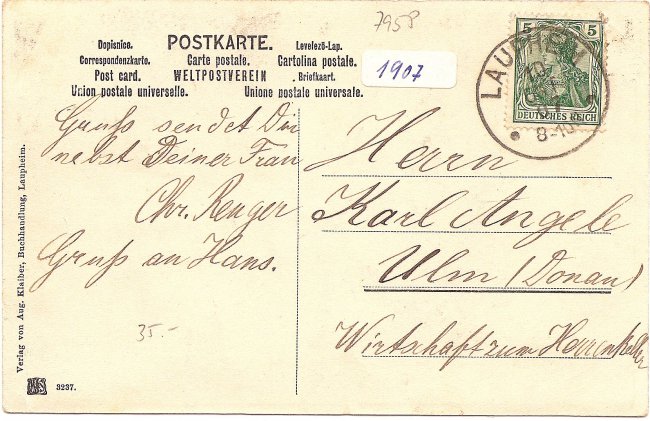 7958
Dopisnice. POSTKARTE. Levelező-Lap.
Correspondenzkarte. Carte postale. Cartolina postale.
Post card. WELTPOSTVEREIN Briefkaart.
Union postale universelle. Unione postale universale.
1907
5 5
DEUTSCHES REICH
LAUPHEIM
8-10
Gruß sendet Dir
nebst Deiner Frau
Chr. Renger
Gruß an Hans.
35.-
Herrn
Karl Angele
Ulm (Donau)
Wirtschaft zum Herrenkeller
Verlag von Aug. Klaiber, Buchhandlung, Laupheim.
3237.